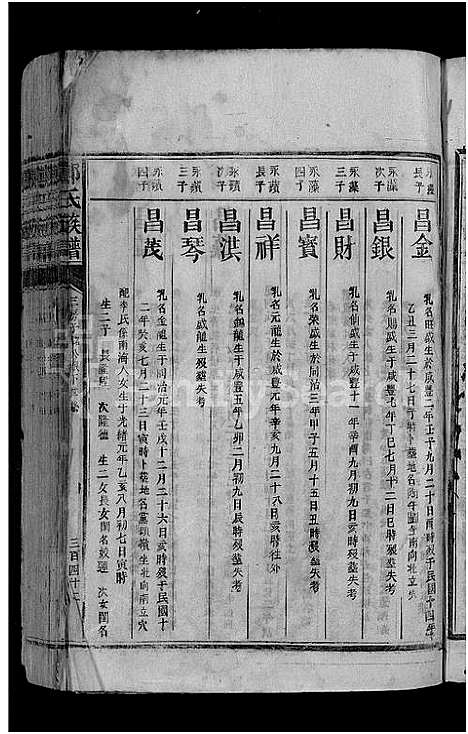 永藻
長子
昌金
乳名旺盛生於咸豐二年壬子九月二十日酉時歿于民國十四年
乙丑三月二十七日
永藻
次子
昌銀
乳名賜盛生于咸豐七年丁巳七月十二日巳時歿墓失考
永藻
三子
昌財
乳名仙盛生于咸豐十一年辛酉九月初九日亥時歿墓失考
永藻
四子
昌寶
乳名榮盛生於同治三年甲子五月十五日丑時歿墓失考
永蘋
長子
昌祥
乳名元龍生於咸豐元年辛亥九月二十八日亥時往外
永蘋
次子
昌淇
乳名錦龍生于咸豐五年乙卯二月初九日辰時歿墓失考
永蘋
三子
昌琴
乳名咸龍生歿墓失考
永蘋
四子
昌茂
乳名金龍生于同治元年壬戌十二月二十六日亥時歿于民國十
二年癸亥七月二十三日寅時卜墓地名黨頭嶺坐北向南立穴
配李氏係南海人女生于光緒元年乙亥八月初七日寅時
生二子 長 次隆德 生二女長女閨名 次女閨名
氏族譜
三百四十二